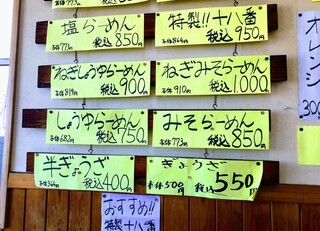 塩らーめん
本体773円 税込850円
特製!!十八番
本体864円 税込950円
ねぎしょうゆらーめん
本体819 税込900円
ねぎみそらーめん
本体910 税込1000円
しょうゆらーめん
本体682 税込750円
みそらーめん
本体773円 税込850円
半ぎょうざ
本体364円 税込400円
ぎょうざ
本体500円 税込550円
オレンジ
300
おすすめ!!
特製 十八番